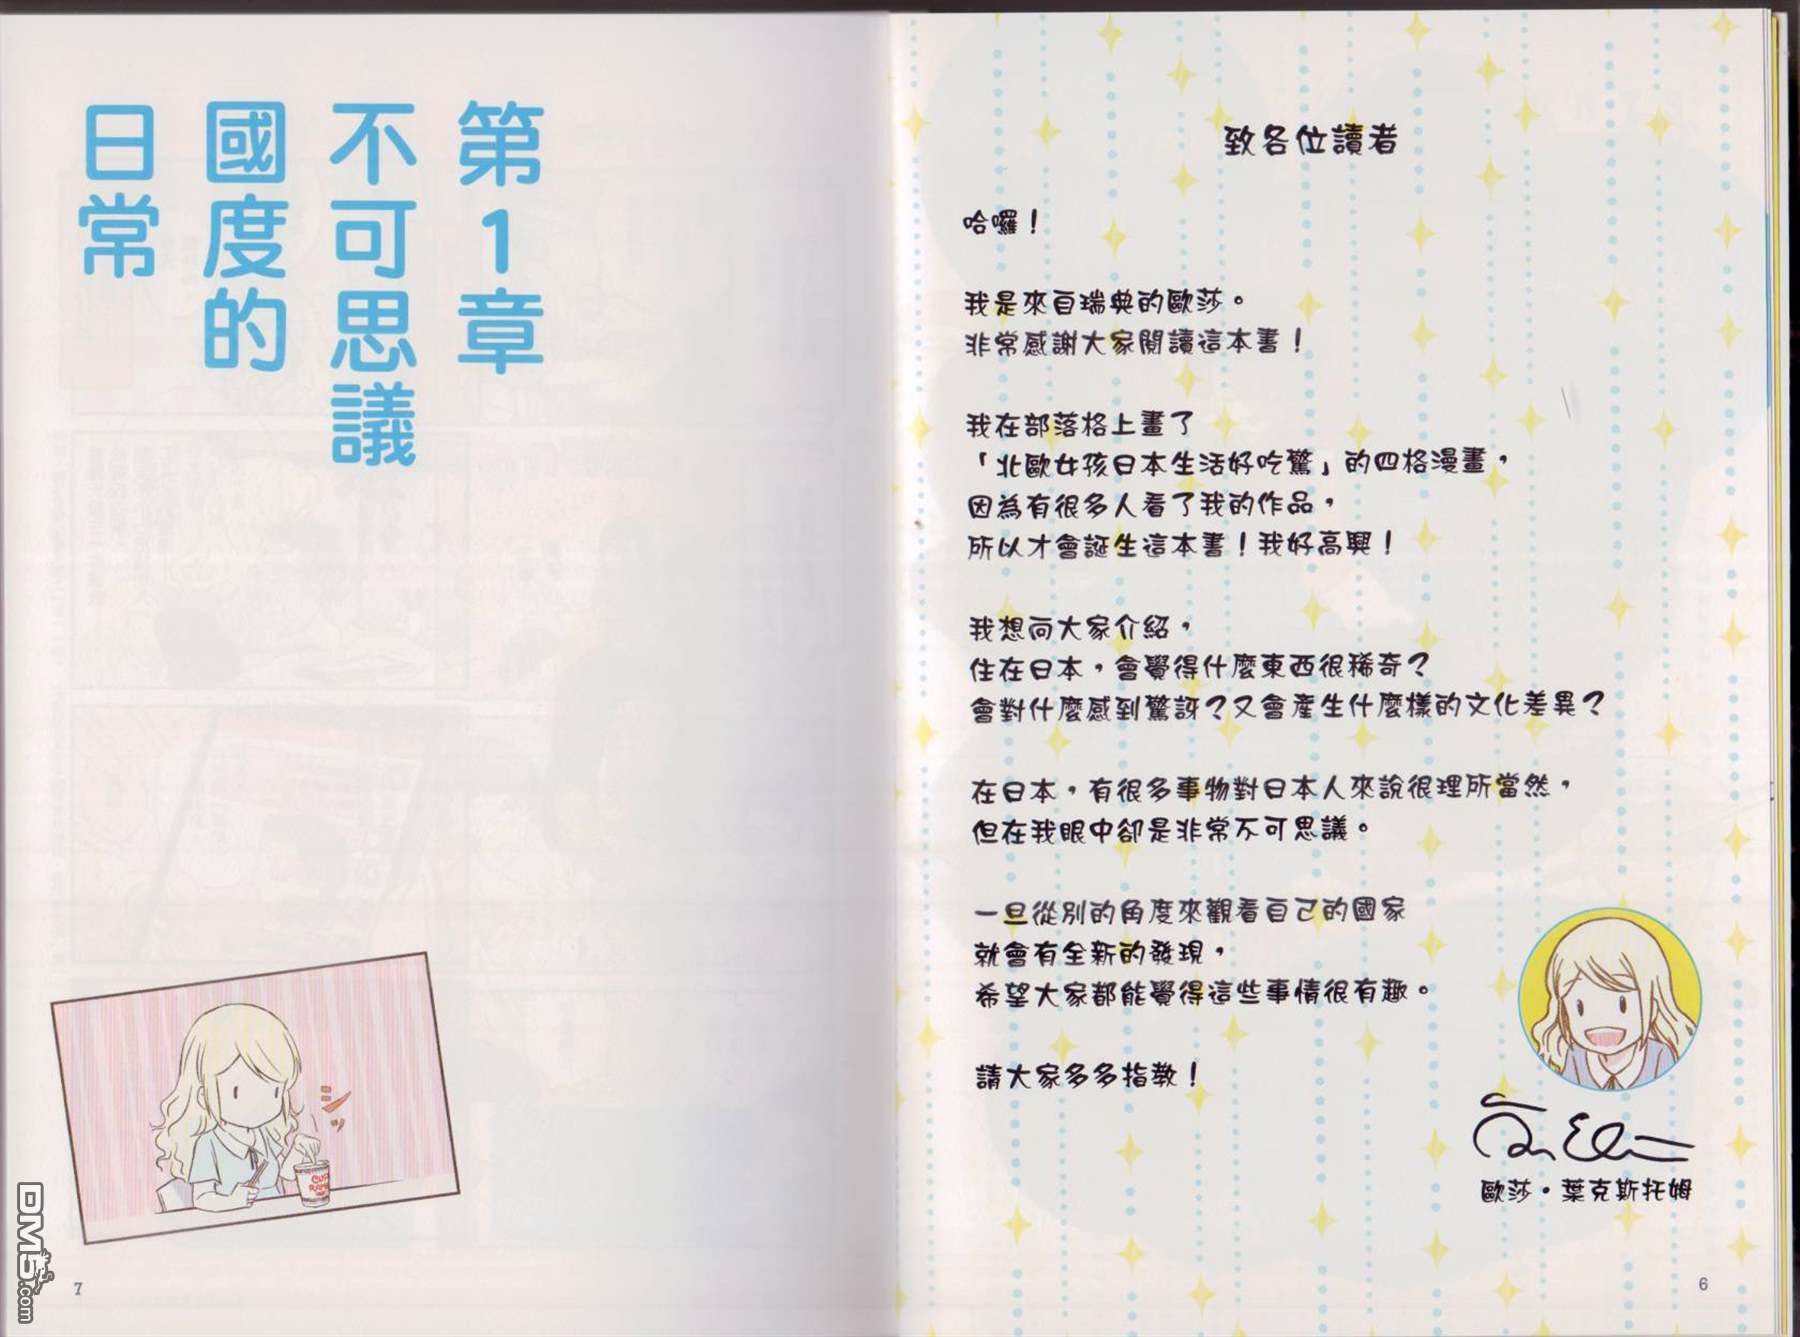 致各位讀者
哈囉！
我是來自瑞典的歐莎。
非常感謝大家閱讀這本書！
我在部落格上畫了
「北歐女孩日本生活好吃驚」的四格漫畫，
因為有很多人看了我的作品，
所以才會誕生這本書！我好高興！
我想向大家介紹，
住在日本，會覺得什麼東西很稀奇？
會對什麼感到驚訝？又會產生什麼樣的文化差異？
在日本，有很多事物對日本人來說很理所當然，
但在我眼中卻是非常不可思議。
一旦從別的角度來觀看自己的國家
就會有全新的發現，
希望大家都能覺得這些事情很有趣。
請大家多多指教！
歐莎・葉克斯托姆
6
第1章
不可思議
國度的
日常
シッ
CUP
7
DM5.com